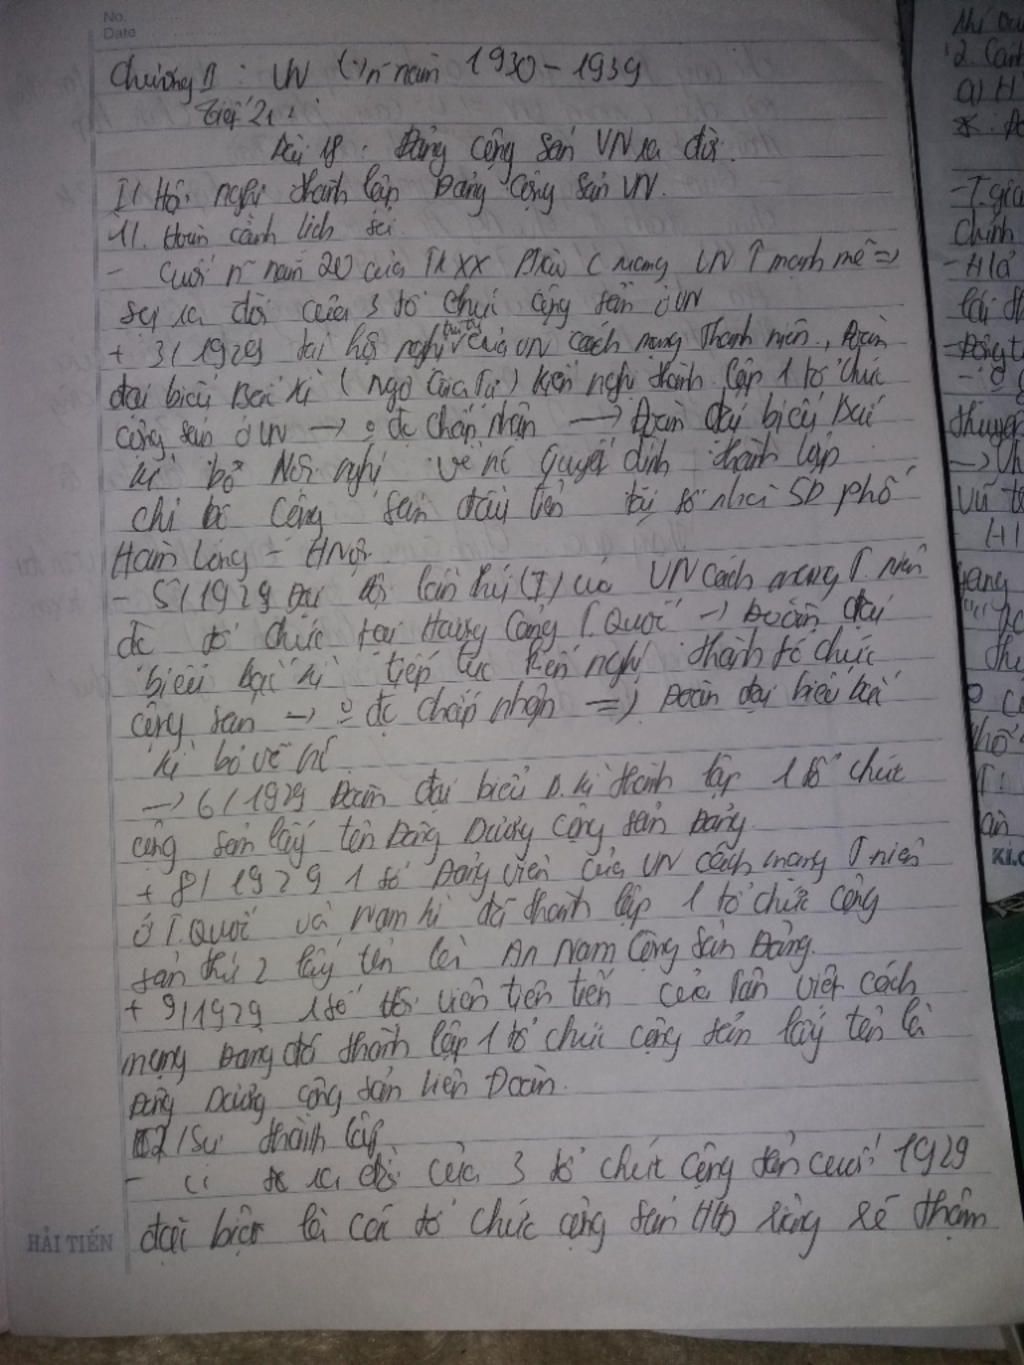 No.
Date
Chương II : VN n~ năm 1930 - 1939
Tiết 21 :
Bài 18 : Đảng cộng sản VN ra đời.
I/ Hội nghị thành lập Đảng Cộng sản VN.
1/. Hoàn cảnh lịch sử.
- Cuối n~ năm 20 của TK XX Ptrào C mạng VN ↑ mạnh mẽ =>
sự ra đời của 3 tổ chức cộng sản ở VN
+ 3/1929 tại hội nghị của VN cách mạng Thanh niên, Đoàn
đại biểu Bắc Kì (Ngô Gia Tự) kiến nghị thành lập 1 tổ chức
cộng sản ở VN -> o đc chấp nhận -> Đoàn đại biểu Bắc
kì bỏ Hội nghị về nc quyết định thành lập
chi bộ Cộng sản đầu tiên tại số nhà 5D phố
Hàm Long - HNội.
- 5/1929 Đại hội lần thứ (I) của VN Cách mạng T. niên
đc tổ chức tại Hương Cảng T. Quốc -> Đoàn đại
biểu bắc kì tiếp tục kiến nghị thành tổ chức
cộng sản -> o đc chấp nhận => Đoàn đại biểu bắc
kì bỏ về nc
-> 6/1929 Đoàn đại biểu B. kì thành lập 1 tổ chức
cộng sản lấy tên Đông Dương Cộng sản Đảng.
+ 8/1929 1 số Đảng viên của VN cách mạng T niên
ở T. Quốc và Nam kì đã thành lập 1 tổ chức cộng
sản thứ 2 lấy tên là An Nam Cộng sản Đảng.
+ 9/1929 1 số hội viên tiên tiến của Tân Việt cách
mạng Đảng đã thành lập 1 tổ chức cộng sản lấy tên là
Đông Dương cộng sản liên Đoàn.
2/ Sự thành lập.
- ra đời của 3 tổ chức Cộng sản cuối 1929
đặc biệt là các tổ chức cộng sản riêng rẽ
HẢI TIẾN
2. Cảnh
a) H
Chính